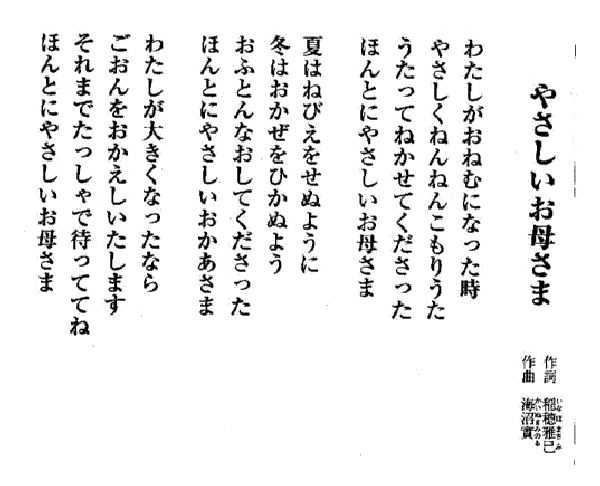 やさしいお母さま
作詞 稲穂雅己
作曲 海沼實
わたしがおねむになった時
やさしくねんねんこもりうた
うたってねかせてくださった
ほんとにやさしいお母さま
夏はねびえをせぬように
冬はおかぜをひかぬよう
おふとんなおしてくださった
ほんとにやさしいおかあさま
わたしが大きくなったなら
ごおんをおかえしいたします
それまでたっしゃで待っててね
ほんとにやさしいお母さま